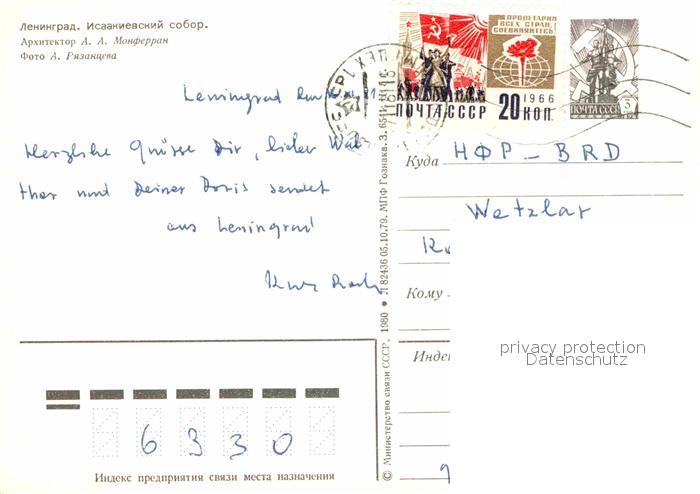 Ленинград. Исаакиевский собор.
Архитектор А. А. Монферран
Фото А. Рязанцева
Leningrad
Herzliche Grüsse Dir, lieber Wal-
ther und Deiner Doris sendet
aus Leningrad
Kurz
ПРОЛЕТАРИИ
ВСЕХ СТРАН,
СОЕДИНЯЙТЕСЬ!
1966
ПОЧТА СССР 20 КОП.
ПОЧТА СССР 3
Куда НФР - BRD
Wetzlar
Кому
Индек
privacy protection
Datenschutz
6330
Индекс предприятия связи места назначения
© Министерство связи СССР, 1980 • Л 82436 05.10.79. МПФ Гознака. З.